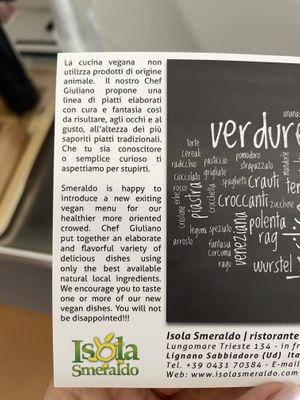 La cucina vegana non
utilizza prodotti di origine
animale. Il nostro Chef
Giuliano propone una
linea di piatti elaborati
con cura e fantasia così
da risultare, agli occhi e al
gusto, all'altezza dei più
saporiti piatti tradizionali.
Che tu sia conoscitore
o semplice curioso ti
aspettiamo per stupirti.
Smeraldo is happy to
introduce a new exiting
vegan menu for our
healthier more oriented
crowed. Chef Giuliano
put together an elaborate
and flavorful variety of
delicious dishes using
only the best available
natural local ingredients.
We encourage you to taste
one or more of our new
vegan dishes. You will not
be disappointed!!!
Isola
Smeraldo
verdure
torte
cereali
radicchio
pasticcio
pomodoro
strapazzato
cioccolato
grigliate
rosso
crocchetta
spaghetti
crauti
piastra
croccanti
zucchine
legumi
speziato
polenta
arrosto
fantasia
curcuma
ragù
veneziana
rag
wurstel
Isola Smeraldo | ristorante
Lungomare Trieste 134 - in fr
Lignano Sabbiadoro (Ud) Ita
Tel. +39 0431 70384 - E-mail
Web: www.isolasmeraldo.com